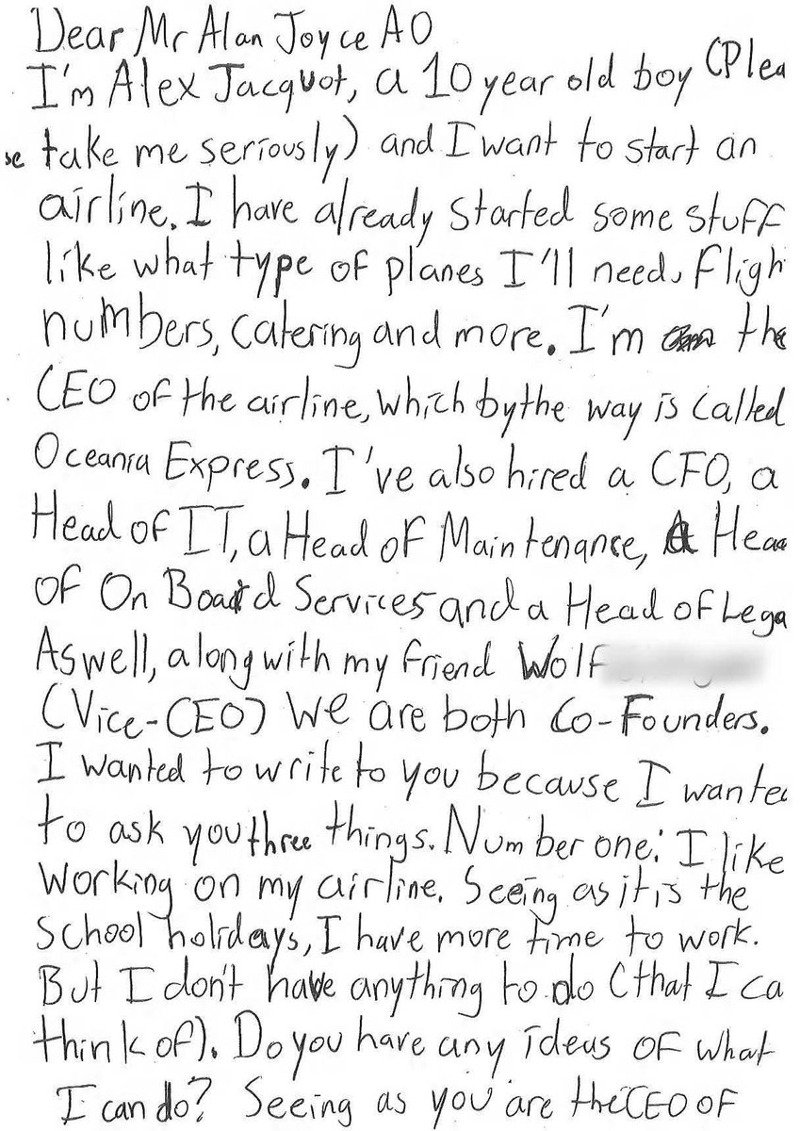 Dear Mr Alan Joyce AO
I'm Alex Jacquot, a 10 year old boy (Plea
se take me seriously) and I want to start an
airline. I have already started some stuff
like what type of planes I'll need, fligh
numbers, catering and more. I'm the
CEO of the airline, which by the way is called
Oceania Express. I've also hired a CFO, a
Head of IT, a Head of Maintenance, A Hea
of On Board Services and a Head of Lega
Aswell, along with my friend Wolf
(Vice-CEO) We are both Co-Founders.
I wanted to write to you because I wanted
to ask you three things. Number one: I like
working on my airline. Seeing as it is the
school holidays, I have more time to work.
But I don't have anything to do (that I ca
think of). Do you have any ideas of what
I can do? Seeing as you are the CEO OF